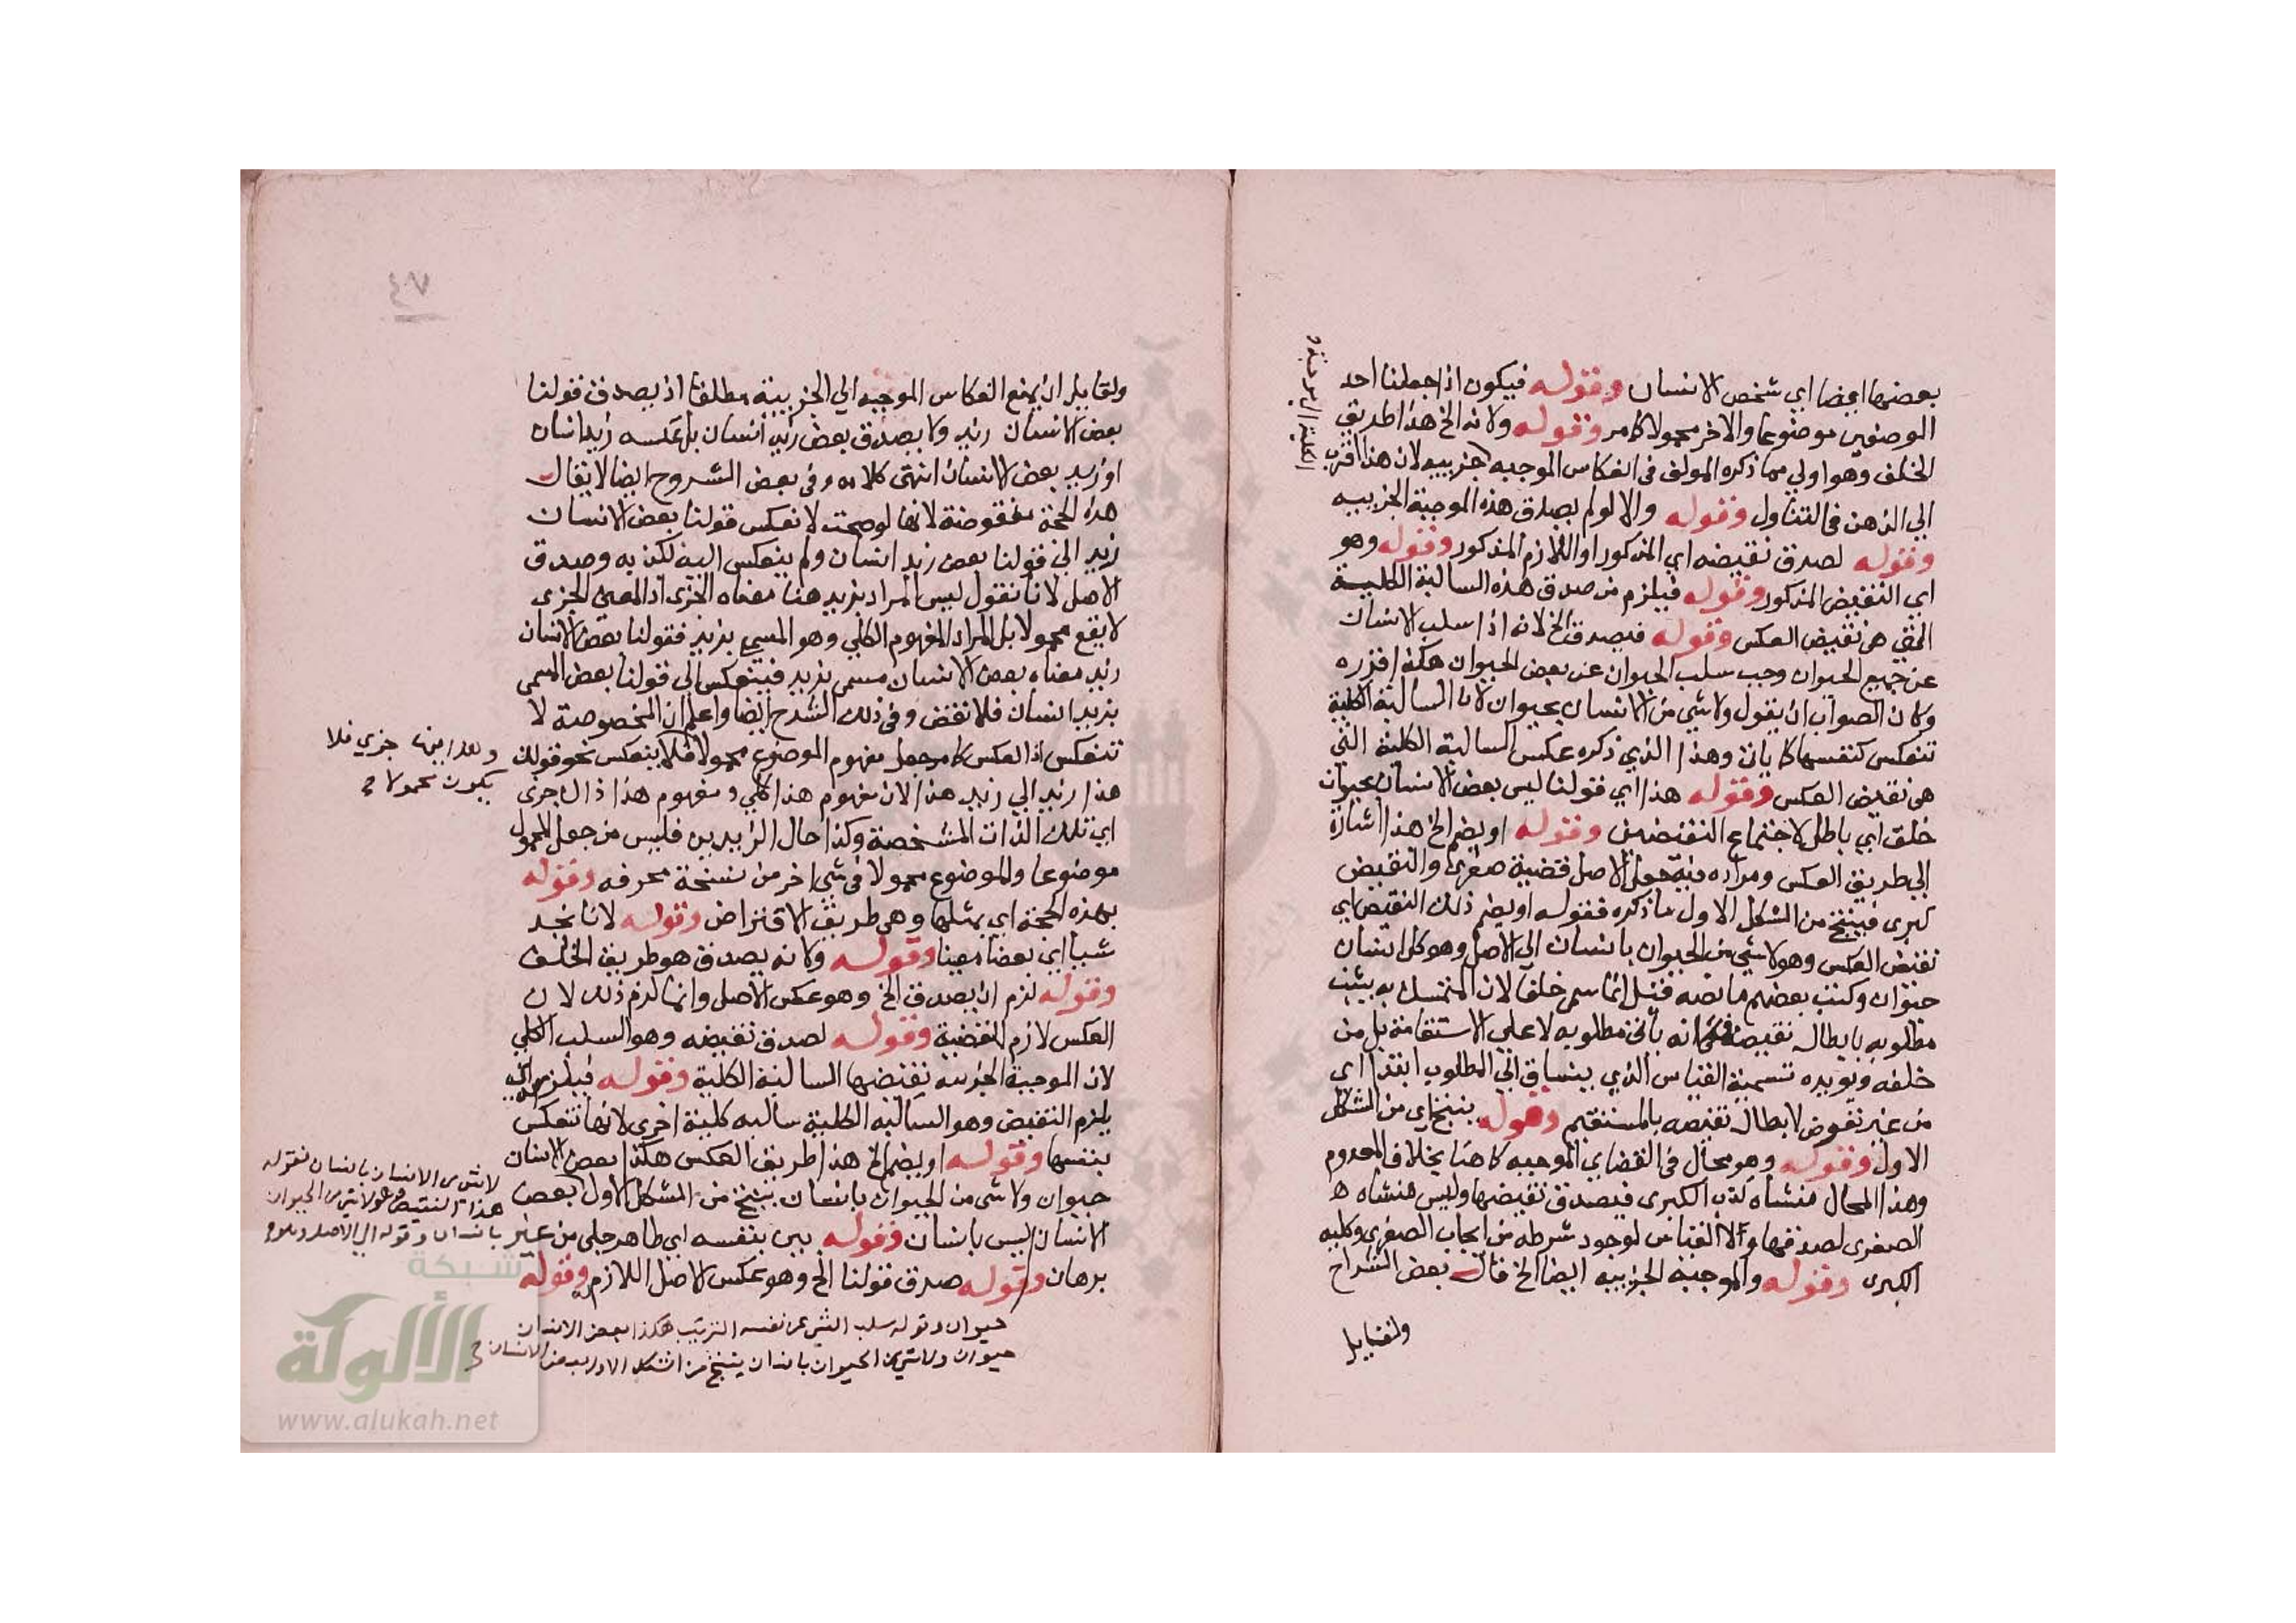 بعضها ايضا اي شخص الانسان وقوله فيكون اذا جعلنا احد
الوصفين موضوعا والاخر محمولا كما مر وقوله ولانه الخ هذا طريق
الخلف وهو اولي مما ذكره المولف في انعكاس الموجبه جزييه لان هذا اقرب
الكلية الي موجبة و
الي الذهن في التناول وقوله والا لو لم يصدق هذه الموجبة الجزييه
وقوله لصدق نقيضه اي المذكور او اللازم المذكور وقوله وهو
اي النقيض المذكور وقوله فيلزم من صدق هذه السالبة الكلية
التي هي نقيض العكس وقوله فيصدق الخ لانه اذا سلب الانسان
عن جميع الحيوان وجب سلب الحيوان عن بعض الحيوان هكذا قزره
وكان الصواب ان يقول ولا شي من الانسان بحيوان لان السالبة الكلية
تنعكس كنفسها كما ياتي وهذا الذي ذكره عكس السالبة الكلية التي
هي نقيض العكس وقوله هذا اي قولنا ليس بعض الانسان بحيوان
خلف اي باطل لاجتماع النقيضين وقوله او يضم الخ هذا اشارة
الي طريق العكس ومراده منه جعل الاصل قضية صغري والنقيض
كبري فينتج من الشكل الاول ما ذكره فقوله او يضم ذلك النقيض اي
نقيض العكس وهو لا شي من الحيوان بانسان الي الاصل وهو كل انسان
حيوان وكتب بعضهم ما نصه قيل انما سمي خلفا لان المتمسك به يثبت
مطلوبه بابطال نقيضه فكانه ياتي مطلوبه لا علي الاستقامة بل من
خلفه ويويده تسمية القياس الذي ينساق الي المطلوب ابتدا اي
من غير تعرض لابطال نقيضه بالمستقيم وقوله ينتج اي من الشكل
الاول وقوله وهو محال في القضايا الموجبه كما هنا بخلاف المعدوم
وهذا المحال منشاه كذب الكبري فيصدق نقيضها وليس منشاه ه
الصغري لصدقها ولا القياس لوجود شرطه من ايجاب الصغري وكليه
الكبري وقوله والموجبة الجزييه ايضا الخ قال بعض الشراح
ولقايل
٤٧
ولقايل ان يمنع انعكاس الموجبه الي الجزيية مطلقا اذ يصدق قولنا
بعض الانسان زيد ولا يصدق بعض زيد انسان بل عكسه زيد انسان
او زيد بعض الانسان انتهي كلامه وفي بعض الشروح ايضا لا يقال
هذه الحجة منقوضة لانها لو صحت لانعكس قولنا بعض الانسان
زيد الي قولنا بعض زيد انسان ولم ينعكس اليه لكذبه وصدق
الاصل لانا نقول ليس المراد بزيد هنا معناه الجزي اذ المعني الجزي
لا يقع محمولا بل المراد المفهوم الكلي وهو المسمي بزيد فقولنا بعض الانسان
زيد معناه بعض الانسان مسمي بزيد فينعكس الي قولنا بعض المسمي
بزيد انسان فلا نقض وفي ذلك الشرح ايضا واعلم ان المخصوصة لا
تنعكس اذ العكس كما مر جعل مفهوم الموضوع محمولا فلا ينعكس نحو قولك
هذا زيد الي زيد هذا لان مفهوم هذا كلي ومفهوم هذا ذال جزي
اي تلك الذات المشخصة وكذا حال الزيدين فليس من جعل المحمول
موضوعا والموضوع محمولا في شي اخر من نسخة محرفه وقوله
بهذه الحجة اي بمثلها وهي طريق الافتراض وقوله لانا نجد
شيا اي بعضا معينا وقوله ولانه يصدق هو طريق الخلف
وقوله لزم ان يصدق الخ وهو عكس الاصل وانما لزم ذلك لان
العكس لازم للقضية وقوله لصدق نقيضه وهو السلب الكلي
لان الموجبة الجزييه نقيضها السالبة الكلية وقوله فيلزم اي
يلزم النقيض وهو السالبه الكلية سالبه كلية اخري لانها تنعكس
بنفسها وقوله او يضم الخ هذا طريق العكس هكذا بعض الانسان
حيوان ولا شي من الحيوان بانسان ينتج من الشكل الاول بعض
الانسان ليس بانسان وقوله بين بنفسه اي ظاهر جلي من غير
برهان وقوله صدق قولنا الخ وهو عكس الاصل اللازم له وقوله
وهذا ايضا جزي فلا
يكون محمولا
لا شي من الانسان بانسان فقوله
هذا النقيض وهو لا شي من الحيوان
بانسان وقوله الي الاصل وهو
حيوان وقوله سلب الشي عن نفسه الترتيب هكذا بعض الانسان
حيوان ولا شي من الحيوان بانسان ينتج من الشكل الاول بعض الانسان
شبكة
الألوكة
www.alukah.net